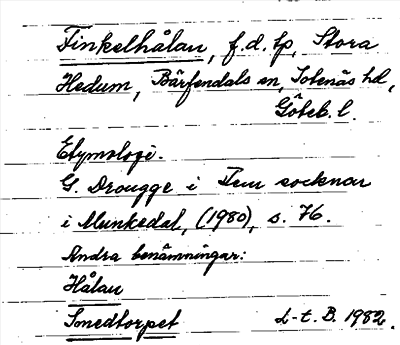 Finkelhålan, f.d. tp, Stora
Hedum, Bärfendals sn, Sotenäs hd,
Göteb. l.
Etymologi.
G. Drougge i Fem socknar
i Munkedal, (1980), s. 76.
Andra benämningar:
Hålan
Smedtorpet L-t. B. 1982.